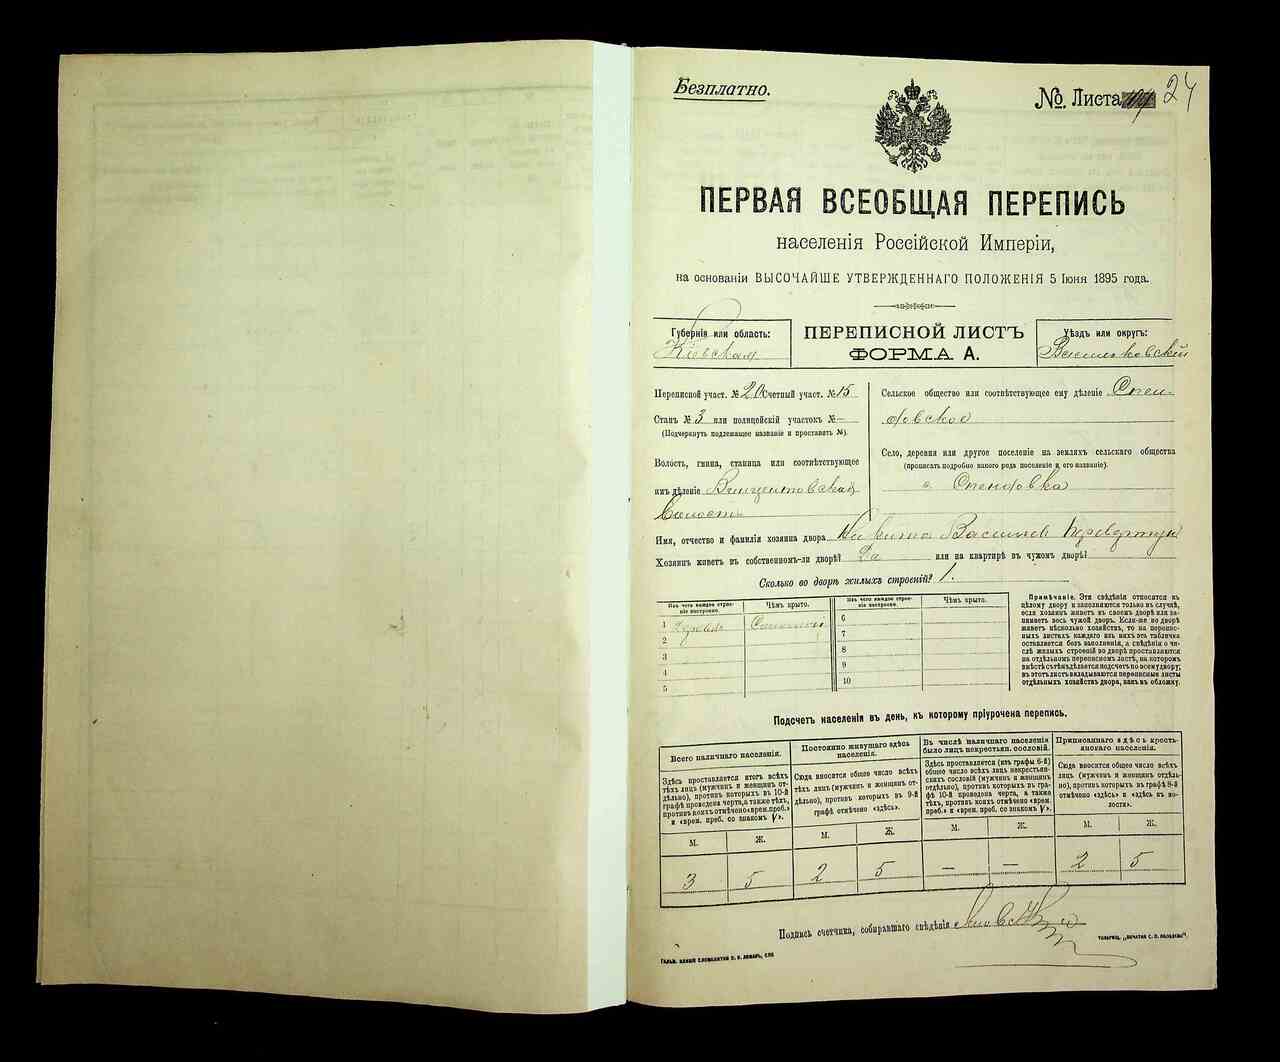 Безплатно.
№ Листа 24
ПЕРВАЯ ВСЕОБЩАЯ ПЕРЕПИСЬ
населенія Россійской Имперіи,
на основаніи ВЫСОЧАЙШЕ УТВЕРЖДЕННАГО ПОЛОЖЕНІЯ 5 Іюня 1895 года.
Губернія или область:
Кіевская
ПЕРЕПИСНОЙ ЛИСТЪ
ФОРМА А.
Уѣздъ или округъ:
Васильковскій
Переписной участ. № 20 Счетный участ. № 15
Станъ № 3 или полицейскій участокъ № —
(Подчеркнуть подлежащее названіе и проставить №).
Волость, гмина, станица или соотвѣтствующее
имъ дѣленіе Винцентовская
Волость
Сельское общество или соотвѣтствующее ему дѣленіе
Село, деревня или другое поселеніе на земляхъ сельскаго общества
(прописать подробно какого рода поселеніе и его названіе).
с.
Имя, отчество и фамилія хозяина двора Никита Васильев
Хозяинъ живетъ въ собственномъ-ли дворѣ? Да или на квартирѣ въ чужомъ дворѣ?
Сколько во дворѣ жилыхъ строеній? 1.
Изъ чего каждое строеніе построено.
Чѣмъ крыто.
Изъ чего каждое строеніе построено.
Чѣмъ крыто.
1 Соломой
2
3
4
5
6
7
8
9
10
Примѣчаніе. Эти свѣдѣнія относятся къ
цѣлому двору и заполняются только въ случаѣ,
если хозяинъ живетъ въ своемъ дворѣ или занимаетъ
весь чужой дворъ. Если-же во дворѣ
живетъ нѣсколько хозяйствъ, то на переписныхъ
листахъ каждаго изъ нихъ эта табличка
оставляется безъ заполненія, а свѣдѣнія о числѣ
жилыхъ строеній во дворѣ проставляются
на отдѣльномъ переписномъ листѣ, на которомъ
вмѣстѣ съ тѣмъ дѣлается подсчетъ по всему двору;
въ этотъ листъ вкладываются переписные листы
отдѣльныхъ хозяйствъ двора, какъ въ обложку.
Подсчетъ населенія въ день, къ которому пріурочена перепись.
Всего наличнаго населенія.
Постоянно живущаго здѣсь
населенія.
Въ числѣ наличнаго населенія
было лицъ некрестьян. сословій.
Приписаннаго здѣсь крестьянскаго
населенія.
Здѣсь проставляется итогъ всѣхъ
тѣхъ лицъ (мужчинъ и женщинъ отдѣльно),
противъ которыхъ въ 10-й
графѣ проведена черта, а также тѣхъ,
противъ коихъ отмѣчено «врем. проб.»
и «врем. преб. со знакомъ V».
Сюда вносится общее число всѣхъ
тѣхъ лицъ (мужчинъ и женщинъ отдѣльно),
противъ которыхъ въ 9-й
графѣ отмѣчено «здѣсь».
Здѣсь проставляется (изъ графы 6-й)
общее число всѣхъ лицъ некрестьянскихъ
сословій (мужчинъ и женщинъ
отдѣльно), противъ которыхъ въ графѣ
10-й проведена черта, а также
тѣхъ, противъ коихъ отмѣчено «врем.
преб.» и «врем. преб. со знакомъ V».
Сюда вносится общее число всѣхъ
лицъ (мужчинъ и женщинъ отдѣльно),
противъ которыхъ въ графѣ 8-й
отмѣчено «здѣсь» и «здѣсь въ волости».
М. Ж. М. Ж. М. Ж. М. Ж.
3 5 2 5 — — 2 5
Подпись счетчика, собиравшаго свѣдѣнія
товарищ. „печатня с. п. яковлева“.